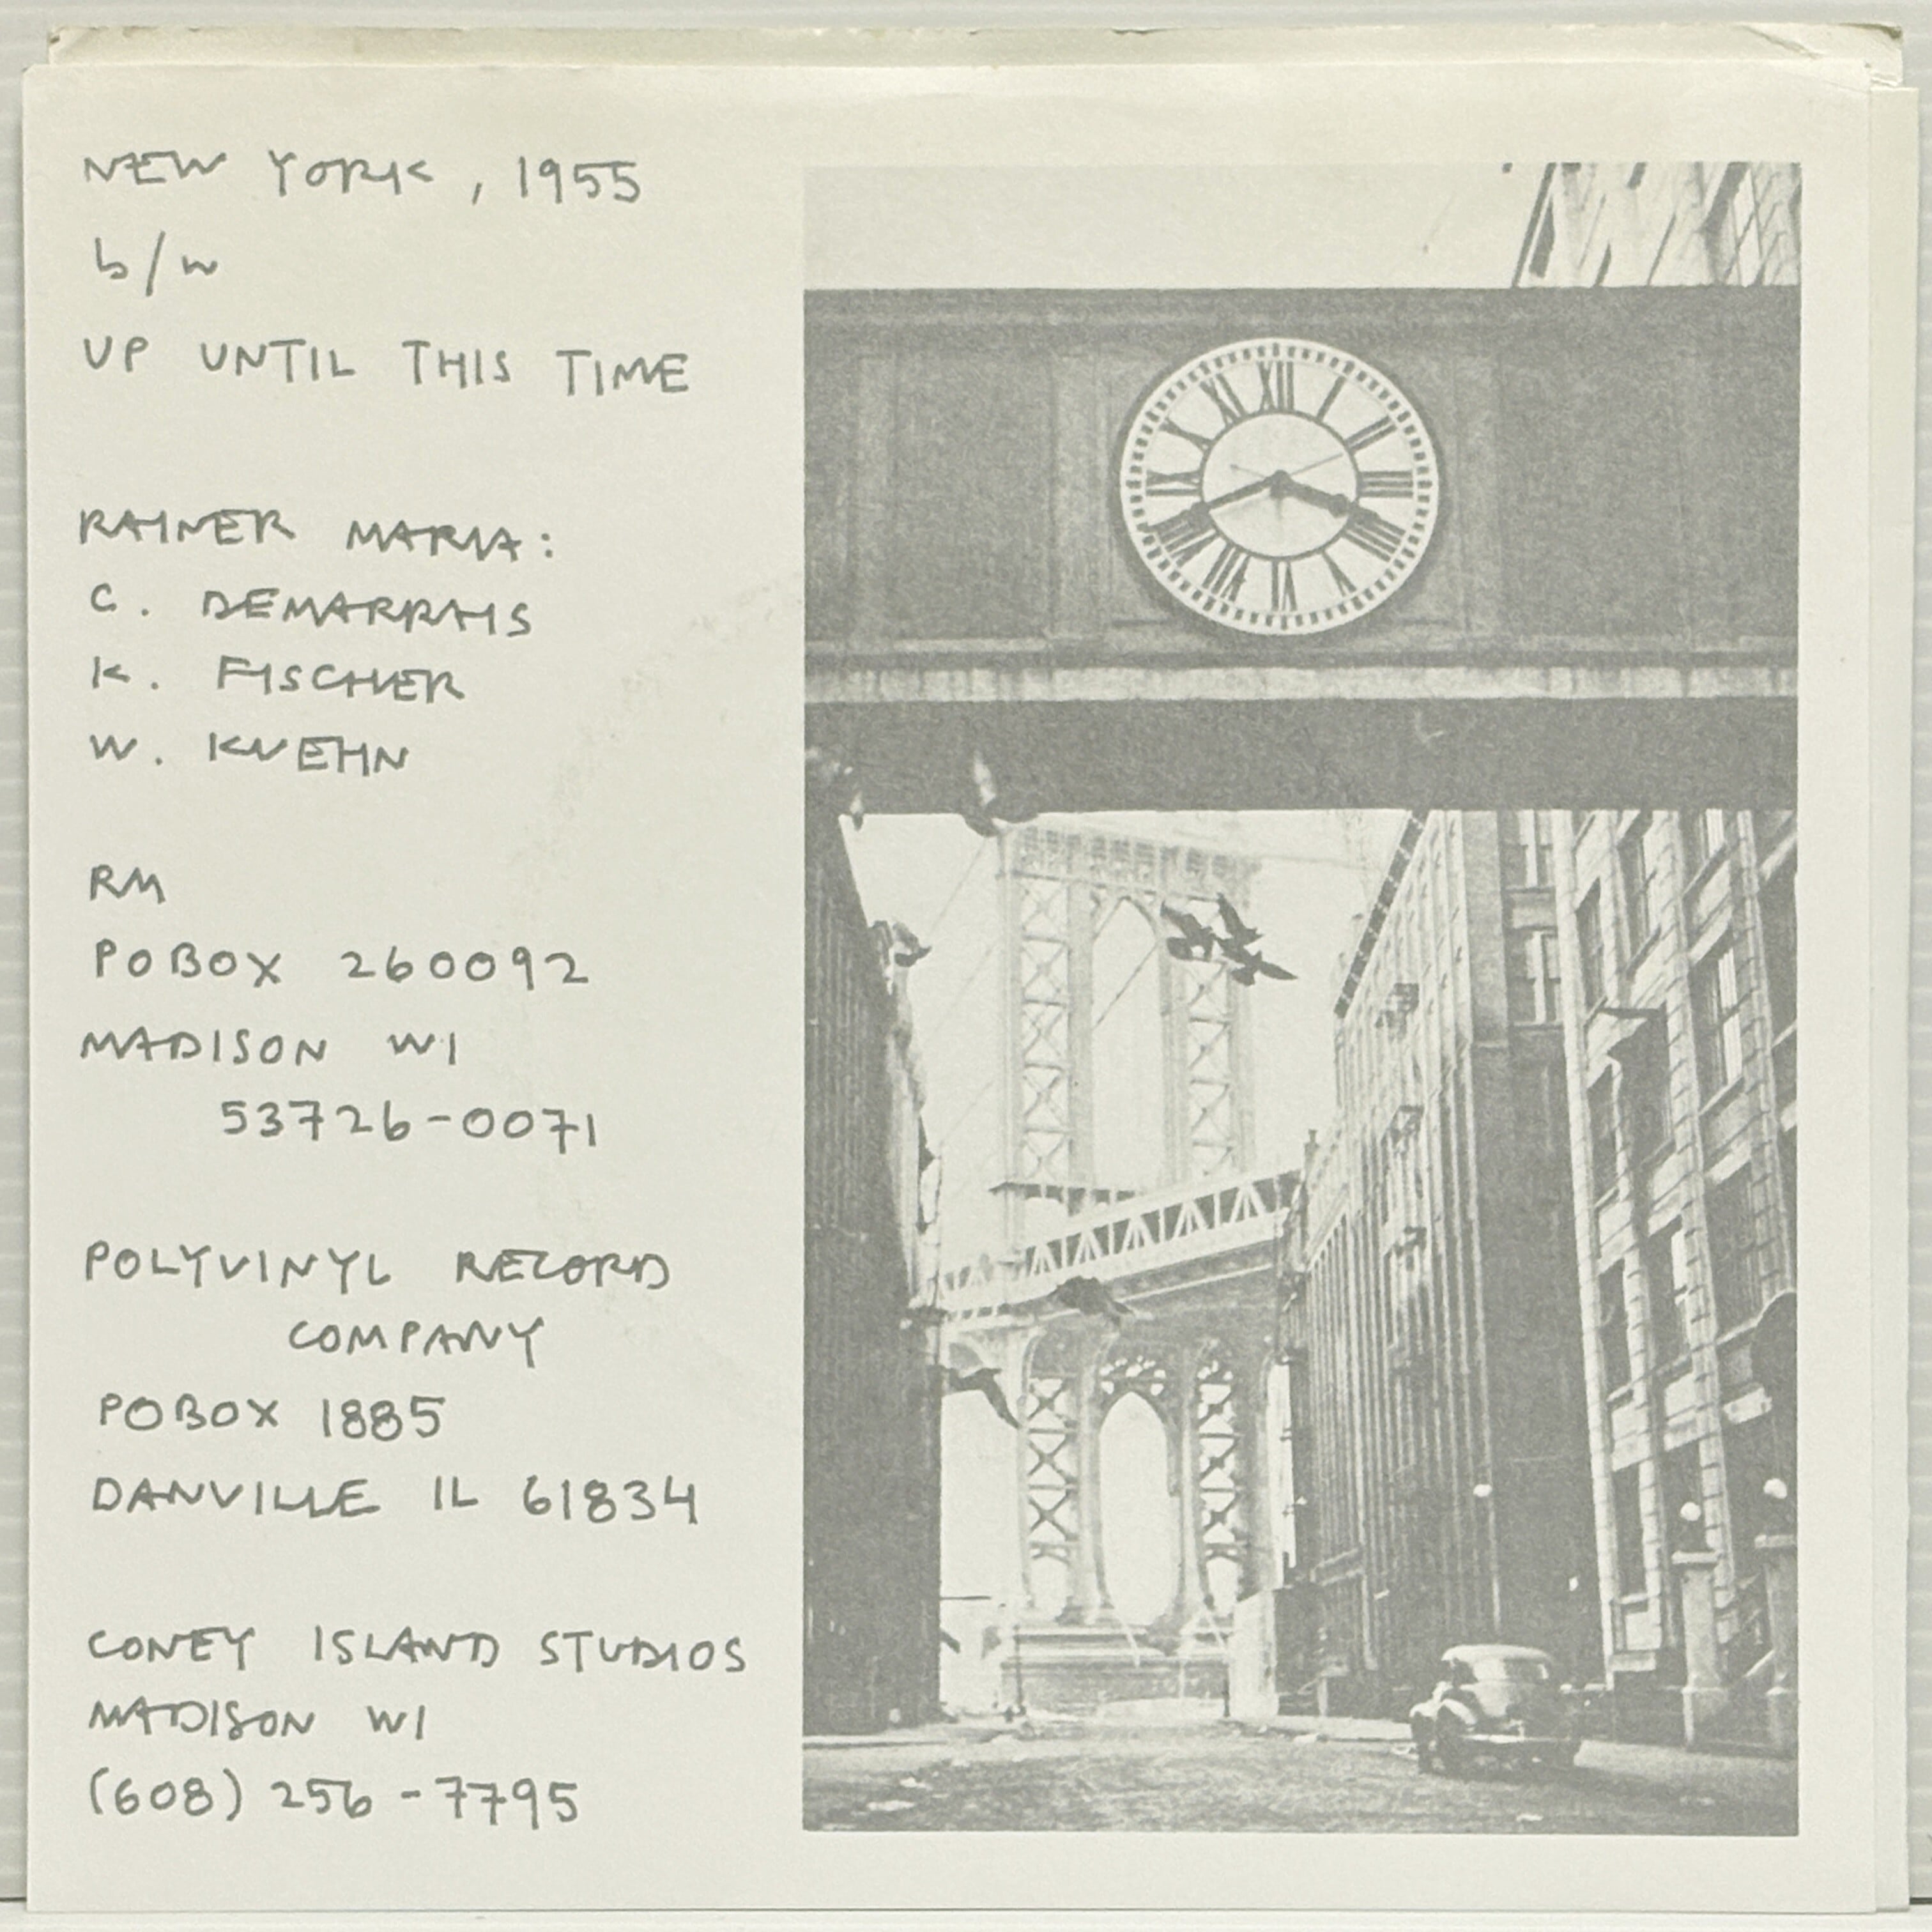 NEW YORK, 1955
b/w
UP UNTIL THIS TIME
RAINER MARIA:
C. DEMARRAIS
K. FISCHER
W. KUEHN
RM
PO BOX 260092
MADISON WI
53726-0071
POLYVINYL RECORD
COMPANY
PO BOX 1885
DANVILLE IL 61834
CONEY ISLAND STUDIOS
MADISON WI
(608) 256-7795
XII
I
II
III
IIII
V
VI
VII
VIII
IX
X
XI